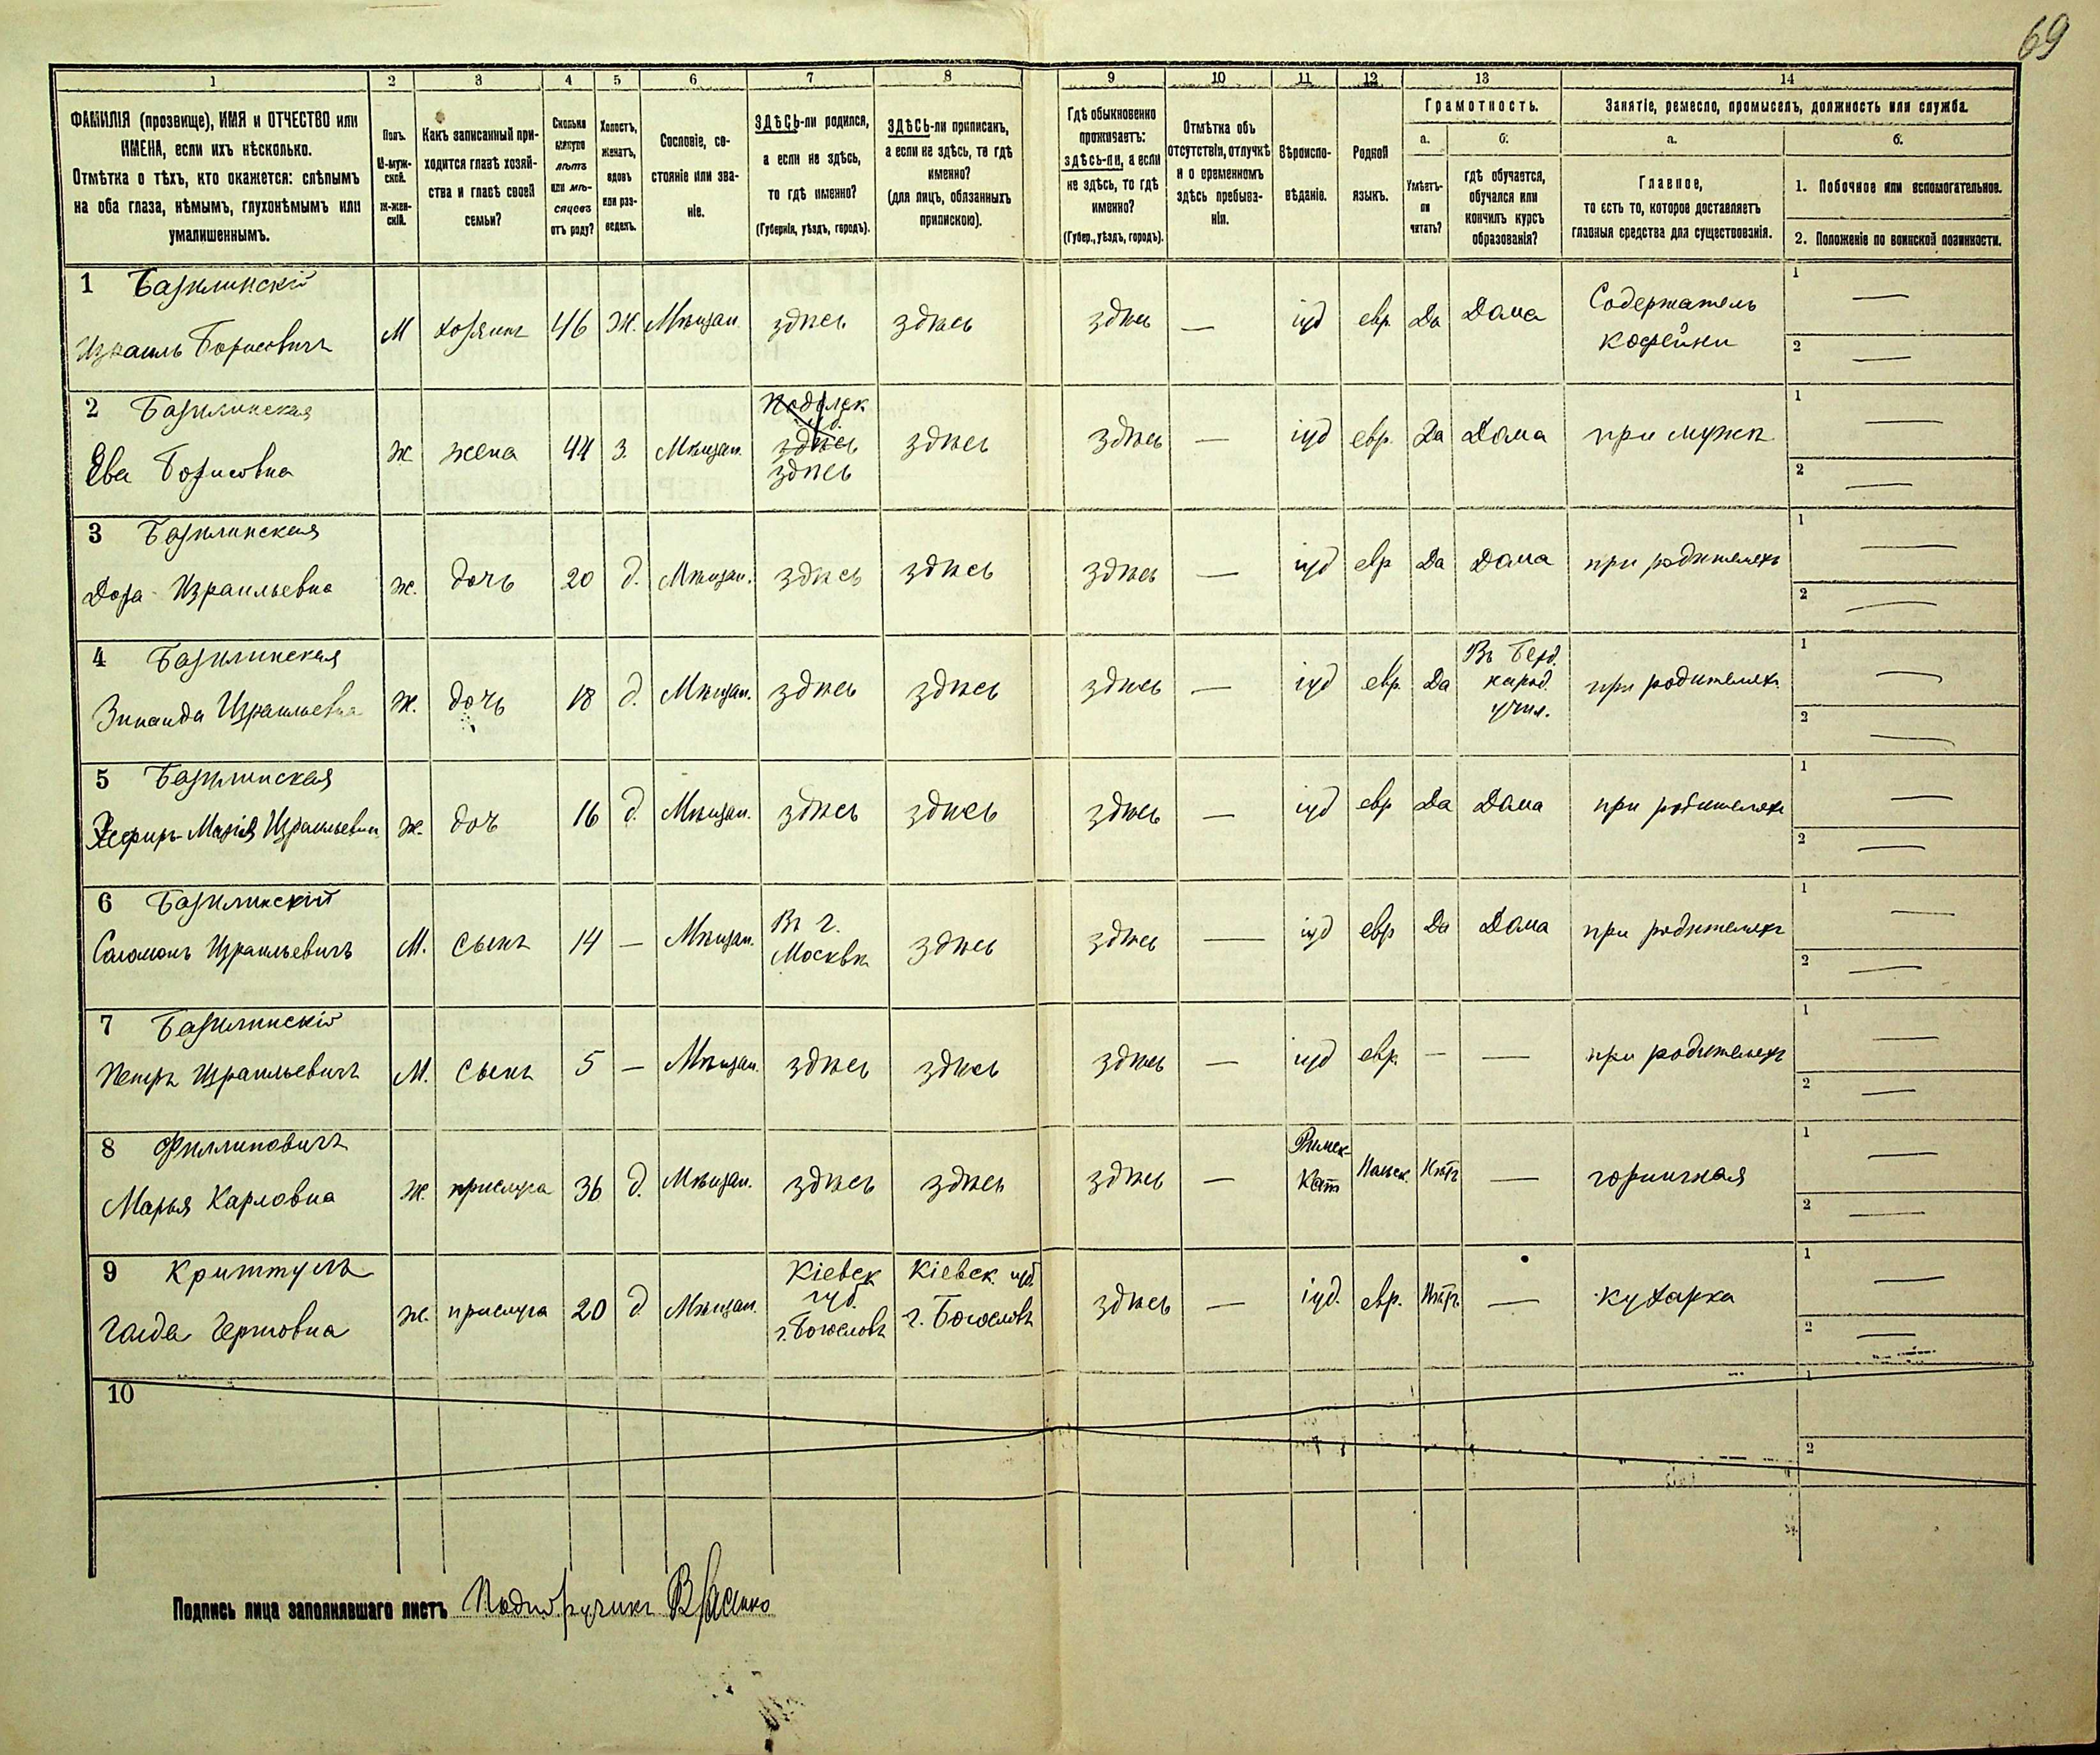 69
1 2 3 4 5 6 7 8 9 10 11 12 13 14
ФАМИЛІЯ (прозвище), ИМЯ и ОТЧЕСТВО или
ИМЕНА, если ихъ нѣсколько.
Отмѣтка о тѣхъ, кто окажется: слѣпымъ
на оба глаза, нѣмымъ, глухонѣмымъ или
умалишеннымъ.
Полъ.
М-муж-
ской.
Ж-жен-
скій.
Какъ записанный при-
ходится главѣ хозяй-
ства и главѣ своей
семьи?
Сколько
минуло
лѣтъ
или мѣ-
сяцевъ
отъ роду?
Холостъ,
женатъ,
вдовъ
или раз-
веденъ.
Сословіе, со-
стояніе или зва-
ніе.
ЗДѢСЬ-ли родился,
а если не здѣсь,
то гдѣ именно?
(Губернія, уѣздъ, городъ).
ЗДѢСЬ-ли приписанъ,
а если не здѣсь, то гдѣ
именно?
(для лицъ, обязанныхъ
припискою).
Гдѣ обыкновенно
проживаетъ:
здѣсь-ли, а если
не здѣсь, то гдѣ
именно?
(Губер., уѣздъ, городъ).
Отмѣтка объ
отсутствіи, отлучкѣ
и о временномъ
здѣсь пребыва-
ніи.
Вѣроиспо-
вѣданіе.
Родной
языкъ.
Грамотность.
а.
Умѣетъ-
ли
читать?
б.
гдѣ обучается,
обучался или
кончилъ курсъ
образованія?
Занятіе, ремесло, промыселъ, должность или служба.
а.
Главное,
то есть то, которое доставляетъ
главныя средства для существованія.
б.
1. Побочное или вспомогательное.
2. Положеніе по воинской повинности.
1 Базилинскій
Израиль Борисовичъ М хозяинъ 46 Ж. Мѣщан. здѣсь здѣсь здѣсь — іуд евр. Да Дома Содержатель
кофейни
1 —
2 —
2 Базилинская
Ева Борисовна ж жена 44 З. Мѣщан. Подольск
губ.
здѣсь
здѣсь здѣсь здѣсь — іуд евр. Да Дома при мужѣ
1 —
2 —
3 Базилинская
Дора Израильевна ж. дочь 20 д. Мѣщан. здѣсь здѣсь здѣсь — іуд евр Да Дома при родителяхъ
1 —
2 —
4 Базилинская
Зинаида Израильевна ж. дочь 18 д. Мѣщан. здѣсь здѣсь здѣсь — іуд евр. Да Въ Берд.
народ.
учил. при родителяхъ
1 —
2 —
5 Базилинская
Марія Израильевн ж. доч 16 д. Мѣщан. здѣсь здѣсь здѣсь — іуд евр Да Дома при родителяхъ
1 —
2 —
6 Базилинскій
Соломонъ Израильевичъ М. сынъ 14 — Мѣщан. Въ г.
Москвѣ здѣсь здѣсь — іуд евр Да Дома при родителяхъ
1 —
2 —
7 Базилинскій
Петръ Израильевичъ М. сынъ 5 — Мѣщан. здѣсь здѣсь здѣсь — іуд евр. — — при родителяхъ
1 —
2 —
8 Филлиповичъ
Марья Карловна ж. прислуга 36 д. Мѣщан. здѣсь здѣсь здѣсь — Римск-
Кат Польск. Нѣтъ — горничная
1 —
2 —
9 Криттуль
Герш​овна ж. прислуга 20 д Мѣщан. Кіевск
губ.
г. Богословъ Кіевск губ.
г. Богословъ здѣсь — іуд. евр. Нѣтъ — кухарка
1 —
2 —
10
1
2
Подпись лица заполнявшаго листъ Подпоручикъ